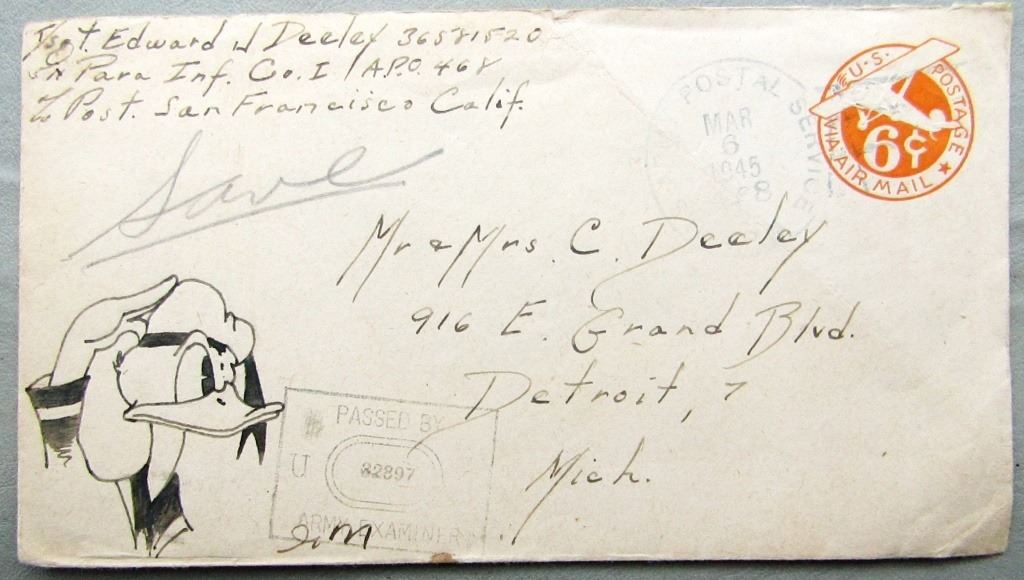 T/Sgt. Edward J Deeley 36581520
Para Inf. Co. I A.P.O. 468
% Post. San Francisco Calif.
Save
POSTAL SERVICE
MAR
6
1945
U.S. POSTAGE
6¢
VIA AIR MAIL
Mr & Mrs. C. Deeley
916 E. Grand Blvd.
Detroit, 7
Mich.
PASSED BY
U 32897
ARMY EXAMINER